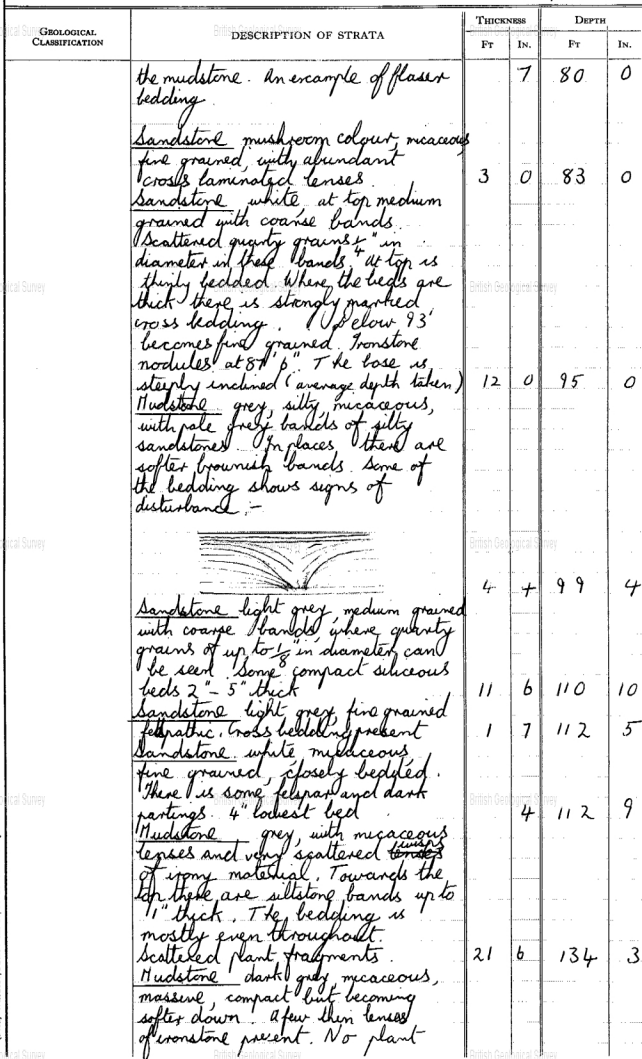 GEOLOGICAL CLASSIFICATION DESCRIPTION OF STRATA THICKNESS DEPTH
FT IN. FT IN.
the mudstone. An example of flaser 7 80 0
bedding
Sandstone mushroom colour, micaceous
fine grained, with abundant
cross laminated lenses 3 0 83 0
Sandstone white at top medium
grained with coarse bands.
Scattered quartz grains 1/4" in
diameter in these bands. At top is
thinly bedded. Where the beds are
thick there is strongly marked
cross bedding. Below 93'
becomes fine grained. Ironstone
nodules at 87' 6". The base is
steeply inclined (average depth taken) 12 0 95 0
Mudstone grey, silty, micaceous,
with pale grey bands of silty
sandstones. In places there are
softer brownish bands. Some of
the bedding shows signs of
disturbance :-
4 4 99 4
Sandstone light grey, medium grained
with coarse bands, where quartz
grains of up to 1/8" in diameter can
be seen. Some compact siliceous
beds 2" - 5" thick 11 6 110 10
Sandstone light grey, fine grained
felspathic. Cross bedding present 1 7 112 5
Sandstone white micaceous
fine grained, closely bedded.
There is some felspar and dark
partings. 4" lowest bed 4 112 9
Mudstone grey, with micaceous
lenses and very scattered wisps
of irony material. Towards the
top there are siltstone bands up to
1" thick. The bedding is
mostly even throughout.
Scattered plant fragments. 21 6 134 3
Mudstone dark grey, micaceous,
massive, compact but becoming
softer down. A few thin lenses
of ironstone present. No plant
British Geological Survey